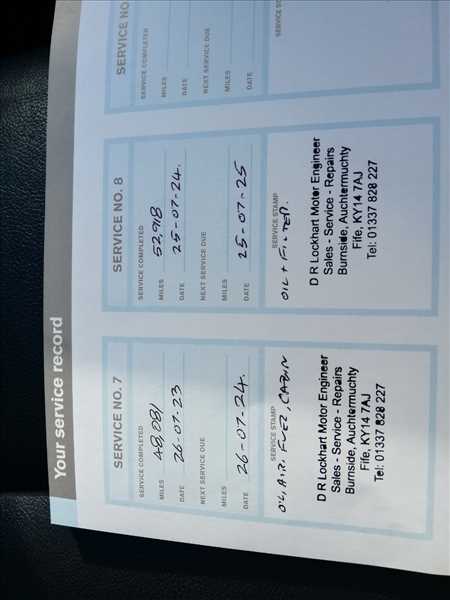 Your service record
SERVICE NO. 7
SERVICE COMPLETED
MILES 48,081
DATE 26-07-23
NEXT SERVICE DUE
MILES
DATE 26-07-24.
SERVICE STAMP
OIL, AIR, FUEL, CABIN
D R Lockhart Motor Engineer
Sales - Service - Repairs
Burnside, Auchtermuchty
Fife, KY14 7AJ
Tel: 01337 828 227
SERVICE NO. 8
SERVICE COMPLETED
MILES 52,918
DATE 25-07-24.
NEXT SERVICE DUE
MILES
DATE 25-07-25
SERVICE STAMP
OIL + FILTER.
D R Lockhart Motor Engineer
Sales - Service - Repairs
Burnside, Auchtermuchty
Fife, KY14 7AJ
Tel: 01337 828 227
SERVICE NO
SERVICE COMPLETED
MILES
DATE
NEXT SERVICE DUE
MILES
DATE
SERVICE